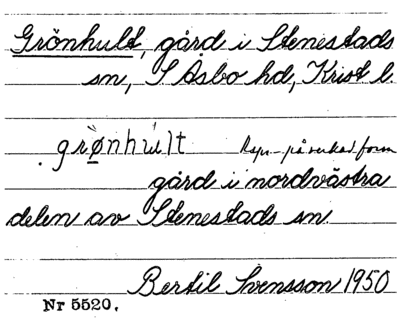 Grönhult, gård i Stenestads
sn, S. Åsbo hd, Krist l.
grønhult Rspr-påverkad form
gård i nordvästra
delen av Stenestads sn.
Bertil Svensson 1950
Nr 5520.